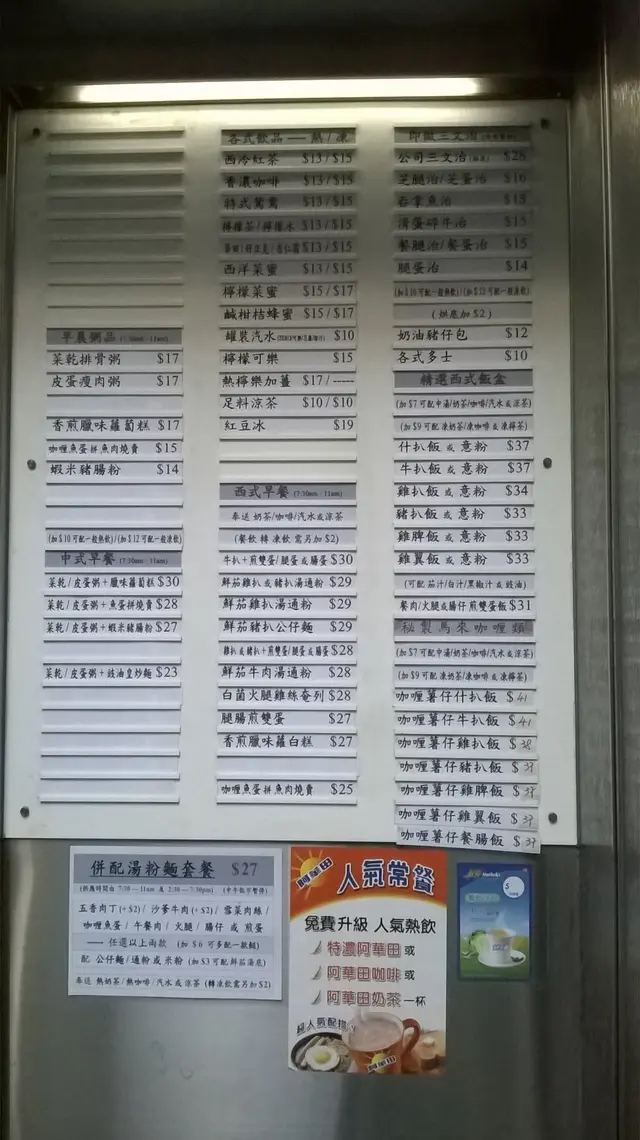 早晨粥品 (7:30am - 11am)
菜乾排骨粥 $17
皮蛋瘦肉粥 $17
香煎臘味蘿蔔糕 $17
咖喱魚蛋拼魚肉燒賣 $15
蝦米豬腸粉 $14
(加$10可配一般熱飲)/(加$12可配一般凍飲)
中式早餐 (7:30am - 11am)
菜乾/皮蛋粥+臘味蘿蔔糕 $30
菜乾/皮蛋粥+魚蛋拼燒賣 $28
菜乾/皮蛋粥+蝦米豬腸粉 $27
菜乾/皮蛋粥+豉油皇炒麵 $23
各式飲品 — 熱/凍
西冷紅茶 $13/$15
香濃咖啡 $13/$15
特式鴛鴦 $13/$15
檸檬茶/檸檬水 $13/$15
$13/$15
西洋菜蜜 $13/$15
檸檬菜蜜 $15/$17
鹹柑桔蜂蜜 $15/$17
罐裝汽水 $10
檸檬可樂 $15
熱檸樂加薑 $17/-----
足料涼茶 $10/$10
紅豆冰 $19
西式早餐 (7:30am - 11am)
奉送 奶茶/咖啡/汽水或涼茶
(餐飲 轉 凍飲 需另加 $2)
牛扒+煎雙蛋/腿蛋 或 腸蛋 $30
鮮茄雞扒 或 豬扒湯通粉 $29
鮮茄雞扒湯通粉 $29
鮮茄豬扒公仔麵 $29
雞扒 或 豬扒+煎雙蛋/腿蛋 或 腸蛋 $28
鮮茄牛肉湯通粉 $28
白菌火腿雞絲奄列 $28
腿腸煎雙蛋 $27
香煎臘味蘿白糕 $27
咖喱魚蛋拼魚肉燒賣 $25
即做三文治
公司三文治 $28
芝腿治/芝蛋治 $16
吞拿魚治 $15
滑蛋碎牛治 $15
餐腿治/餐蛋治 $15
腿蛋治 $14
(加$10可配一般熱飲)/(加$12可配一般凍飲)
(烘底加 $2)
奶油豬仔包 $12
各式多士 $10
精選西式飯盒
(加$7可配中湯/奶茶/咖啡/汽水或涼茶)
(加$9可配凍奶茶/凍咖啡 或 凍檸茶)
什扒飯 或 意粉 $37
牛扒飯 或 意粉 $37
雞扒飯 或 意粉 $34
豬扒飯 或 意粉 $33
雞脾飯 或 意粉 $33
雞翼飯 或 意粉 $33
(可配茄汁/白汁/黑椒汁 或 豉油)
餐肉/火腿 或 腸仔 煎雙蛋飯 $31
秘製馬來咖喱類
(加$7可配中湯/奶茶/咖啡/汽水或涼茶)
(加$9可配凍奶茶/凍咖啡 或 凍檸茶)
咖喱薯仔什扒飯 $41
咖喱薯仔牛扒飯 $41
咖喱薯仔雞扒飯 $38
咖喱薯仔豬扒飯 $37
咖喱薯仔雞脾飯 $37
咖喱薯仔雞翼飯 $37
咖喱薯仔餐腸飯 $37
併配湯粉麵套餐 $27
(供應時間由 7:30 — 11am 及 2:30 — 7:30pm) (中午飯市暫停)
五香肉丁(+$2)/沙爹牛肉(+$2)/雪菜肉絲/
咖喱魚蛋/午餐肉/火腿/腸仔 或 煎蛋
—— 任選以上兩款 (加$6可多配一款餸)
配 公仔麵/通粉 或 米粉 (加$3可配鮮茄湯底)
奉送 熱奶茶/熱咖啡/汽水 或 涼茶 (轉凍飲需另加$2)
阿華田
人氣常餐
免費升級 人氣熱飲
特濃阿華田 或
阿華田咖啡 或
阿華田奶茶 一杯
超人氣配搭
阿華田